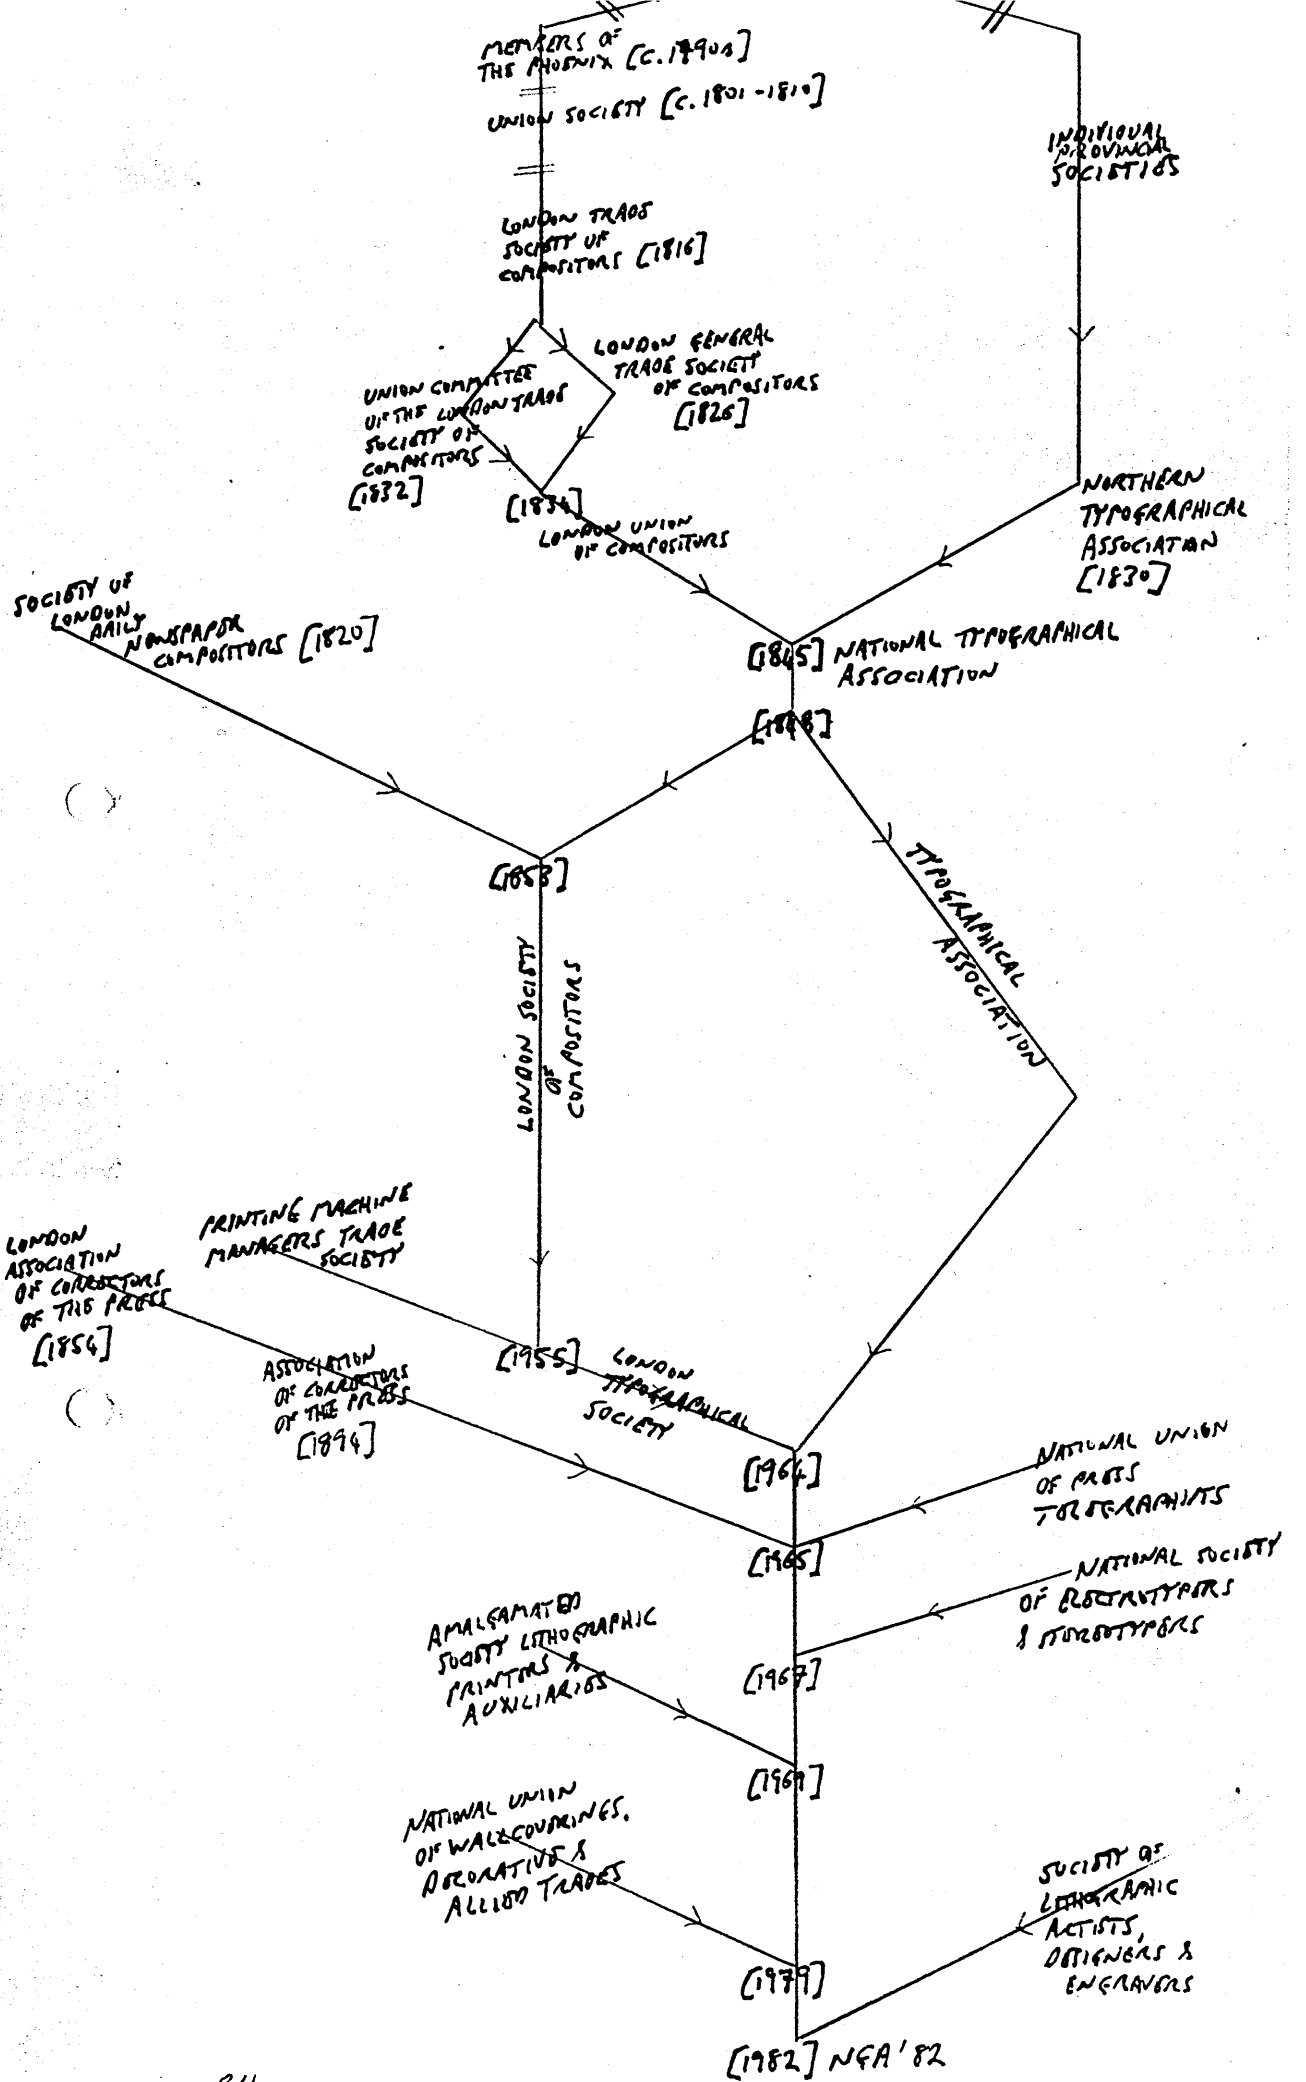 MEMBERS OF
THE PHOENIX [C.1790s]
UNION SOCIETY [C.1801-1810]
INDIVIDUAL
PROVINCIAL
SOCIETIES
LONDON TRADE
SOCIETY OF
COMPOSITORS [1816]
LONDON GENERAL
TRADE SOCIETY
OF COMPOSITORS
[1826]
UNION COMMITTEE
OF THE LONDON TRADE
SOCIETY OF
COMPOSITORS
[1832]
[1834]
LONDON UNION
OF COMPOSITORS
NORTHERN
TYPOGRAPHICAL
ASSOCIATION
[1830]
SOCIETY OF
LONDON
DAILY
NEWSPAPER
COMPOSITORS [1820]
[1845] NATIONAL TYPOGRAPHICAL
ASSOCIATION
[1848]
[1853]
TYPOGRAPHICAL
ASSOCIATION
LONDON SOCIETY
OF
COMPOSITORS
PRINTING MACHINE
MANAGERS TRADE
SOCIETY
LONDON
ASSOCIATION
OF CORRECTORS
OF THE PRESS
[1854]
[1955]
LONDON
TYPOGRAPHICAL
SOCIETY
ASSOCIATION
OF CORRECTORS
OF THE PRESS
[1894]
[1964]
NATIONAL UNION
OF PRESS
TELEGRAPHISTS
[1965]
NATIONAL SOCIETY
OF ELECTROTYPERS
& STEREOTYPERS
AMALGAMATED
SOCIETY LITHOGRAPHIC
PRINTERS &
AUXILIARIES
[1967]
[1969]
NATIONAL UNION
OF WALLCOVERINGS,
DECORATIVE &
ALLIED TRADES
SOCIETY OF
LITHOGRAPHIC
ARTISTS,
DESIGNERS &
ENGRAVERS
[1979]
[1982] NGA '82